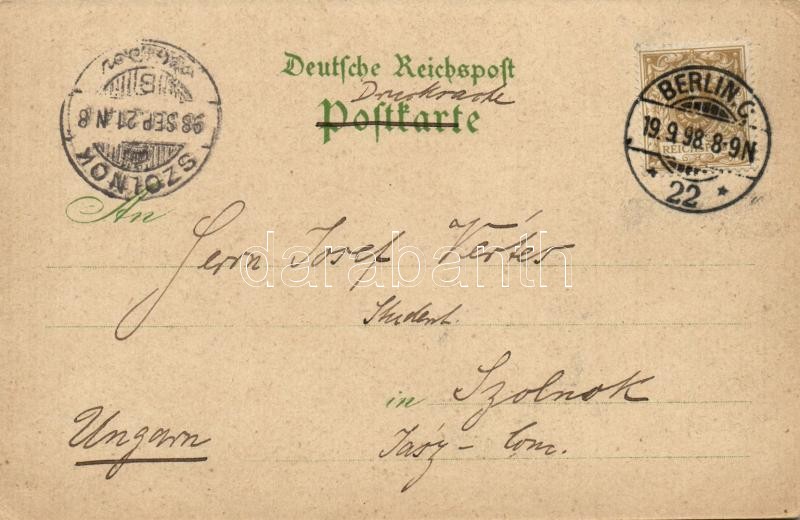 Deutsche Reichspost
Drucksache
Postkarte
SZOLNOK
98 SEP. 21. N. 8
B
BERLIN. C.
19.9.98. 8-9N
* 22 *
REICHSPOST
An
Herrn Josef Vértes
darabanth
Student.
in Szolnok
Ungarn
Jász- Com.